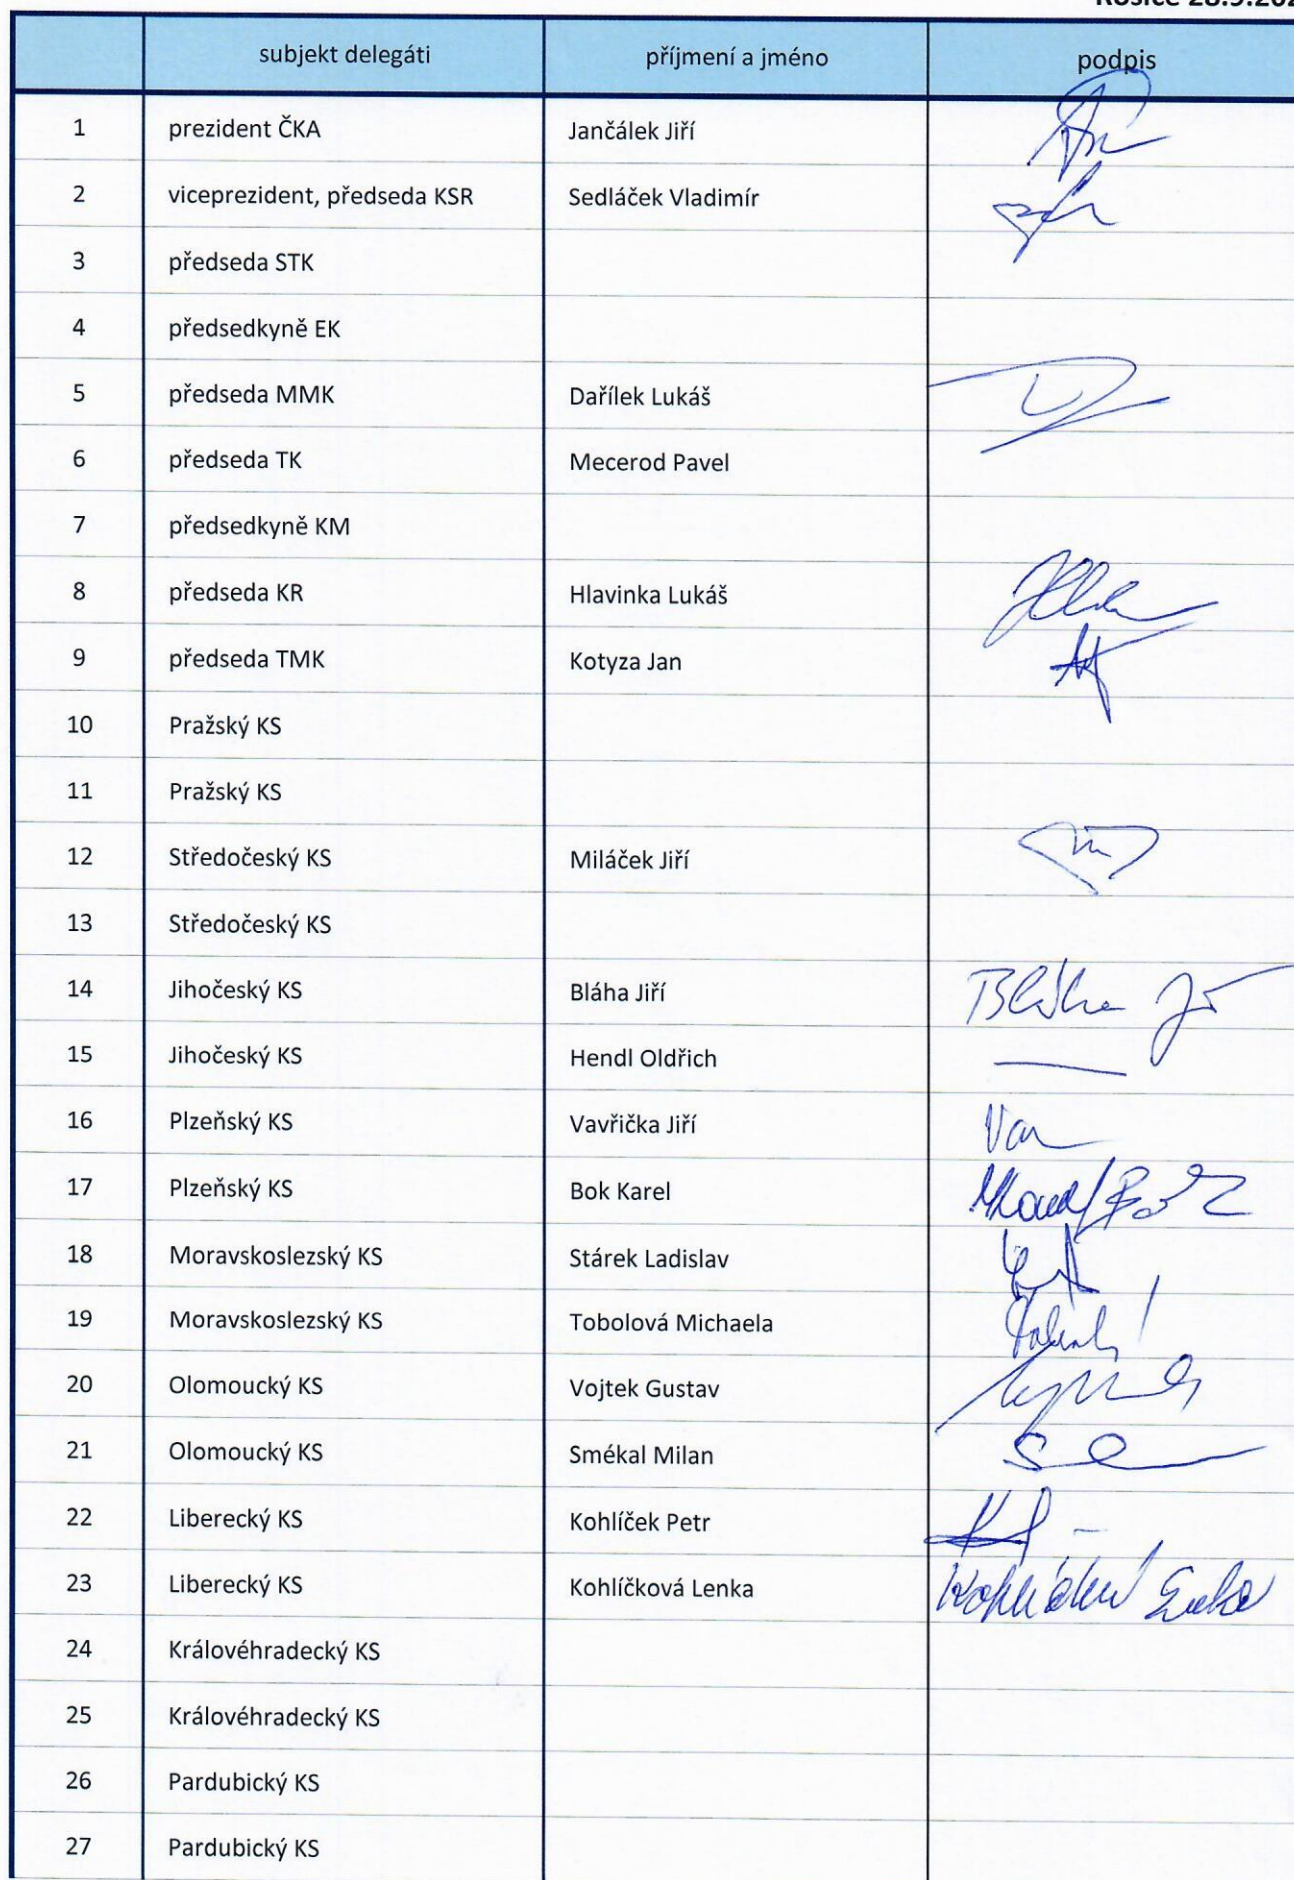 Rosice 28.9.202
subjekt delegáti příjmení a jméno podpis
1 prezident ČKA Jančálek Jiří
2 viceprezident, předseda KSR Sedláček Vladimír
3 předseda STK
4 předsedkyně EK
5 předseda MMK Dařílek Lukáš
6 předseda TK Mecerod Pavel
7 předsedkyně KM
8 předseda KR Hlavinka Lukáš
9 předseda TMK Kotyza Jan
10 Pražský KS
11 Pražský KS
12 Středočeský KS Miláček Jiří
13 Středočeský KS
14 Jihočeský KS Bláha Jiří Bláha Jř
15 Jihočeský KS Hendl Oldřich
16 Plzeňský KS Vavřička Jiří Vav
17 Plzeňský KS Bok Karel
18 Moravskoslezský KS Stárek Ladislav
19 Moravskoslezský KS Tobolová Michaela
20 Olomoucký KS Vojtek Gustav
21 Olomoucký KS Smékal Milan
22 Liberecký KS Kohlíček Petr
23 Liberecký KS Kohlíčková Lenka
24 Královéhradecký KS
25 Královéhradecký KS
26 Pardubický KS
27 Pardubický KS